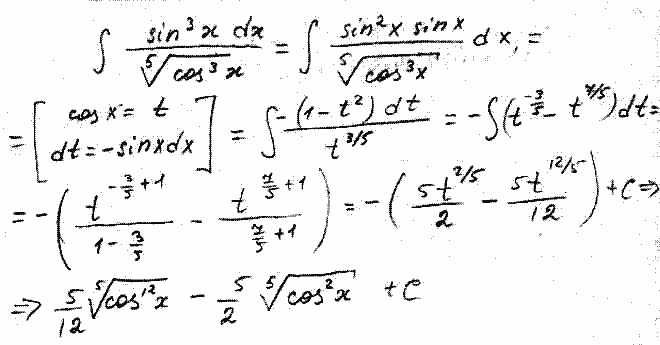 ∫ sin³x dx / ⁵√(cos³x) = ∫ sin²x sinx / ⁵√(cos³x) dx, =
= [cosx = t; dt = -sinxdx] = ∫ -(1-t²) dt / t^(3/5) = -∫(t^(-3/5) - t^(7/5))dt =
= -( t^(-3/5+1) / (1-3/5) - t^(7/5+1) / (7/5+1) ) = -( 5t^(2/5) / 2 - 5t^(12/5) / 12 ) + C ⇒
⇒ 5/12 ⁵√(cos¹²x) - 5/2 ⁵√(cos²x) + C